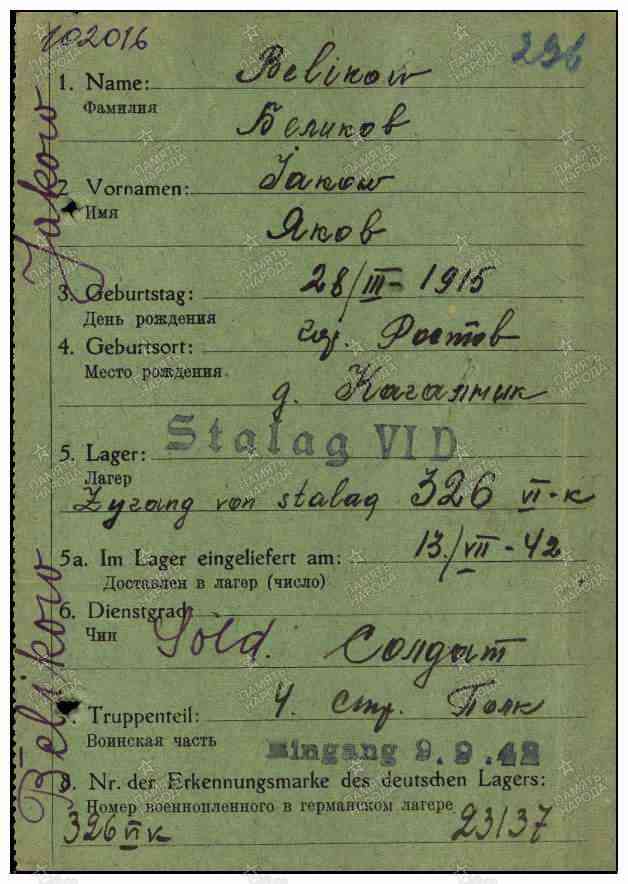 102016
296
1. Name: Belikow
Фамилия
Беликов
2. Vornamen: Jakow
Имя
Яков
3. Geburtstag: 28/III- 1915
День рождения
4. Geburtsort: гор. Ростов
Место рождения
д. Кагальник
5. Lager: Stalag VI D
Лагер
Zugang von stalag 326 VI-K
5a. Im Lager eingeliefert am: 13./VII-42
Доставлен в лагер (число)
6. Dienstgrad:
Чин Sold. Солдат
7. Truppenteil: 4. стр. Полк
Воинская часть
Eingang 9.9.42
8. Nr. der Erkennungsmarke des deutschen Lagers:
Номер военнопленного в германском лагере
326 VI K 23137
Belikow Jakow
ПАМЯТЬ НАРОДА